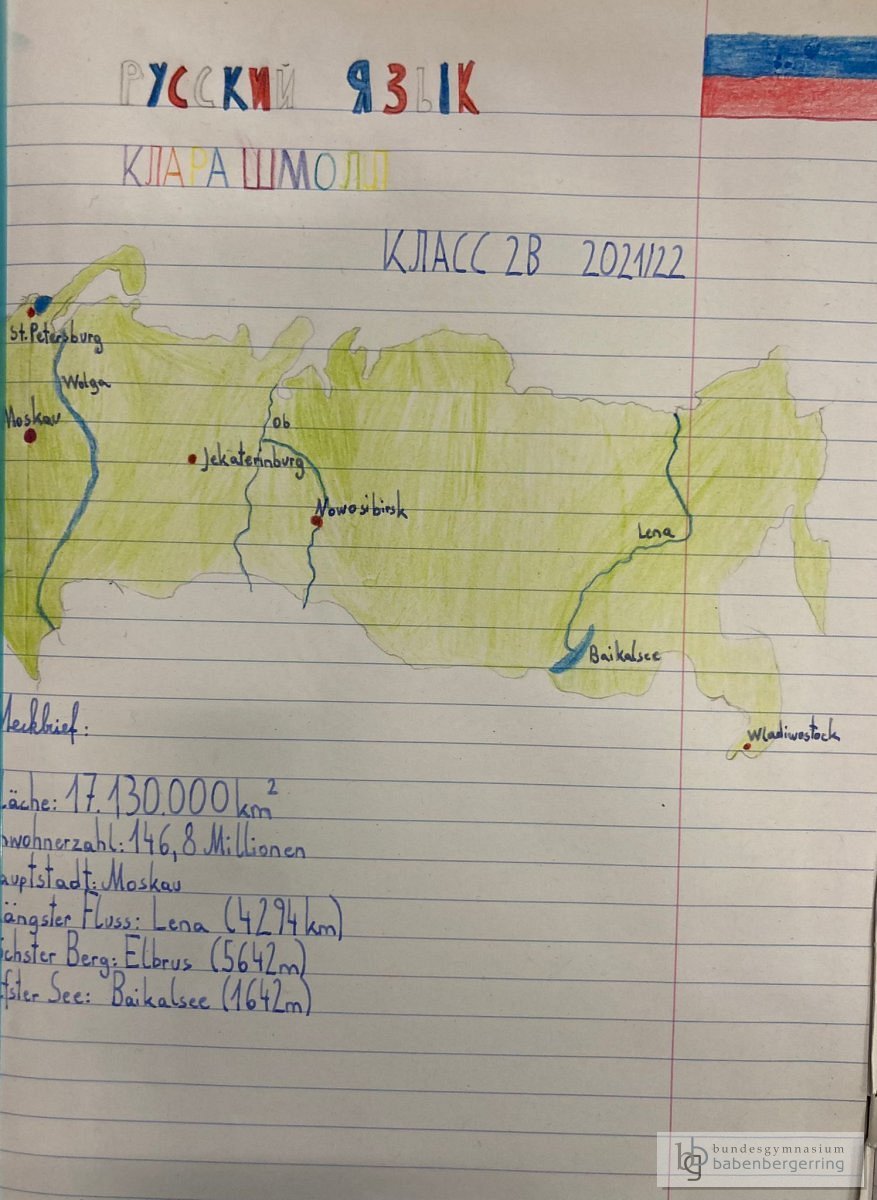 РУССКИЙ ЯЗЫК
КЛАРА ШМОЛЛ
КЛАСС 2В 2021/22
St. Petersburg
Wolga
Moskau
Ob
Jekaterinburg
Nowosibirsk
Lena
Baikalsee
Wladiwostock
teckbrief:
läche: 17.130.000 km²
wohnerzahl: 146,8 Millionen
auptstadt: Moskau
ängster Fluss: Lena (4294 km)
chster Berg: Elbrus (5642m)
fster See: Baikalsee (1642m)
bundesgymnasium
babenbergerring